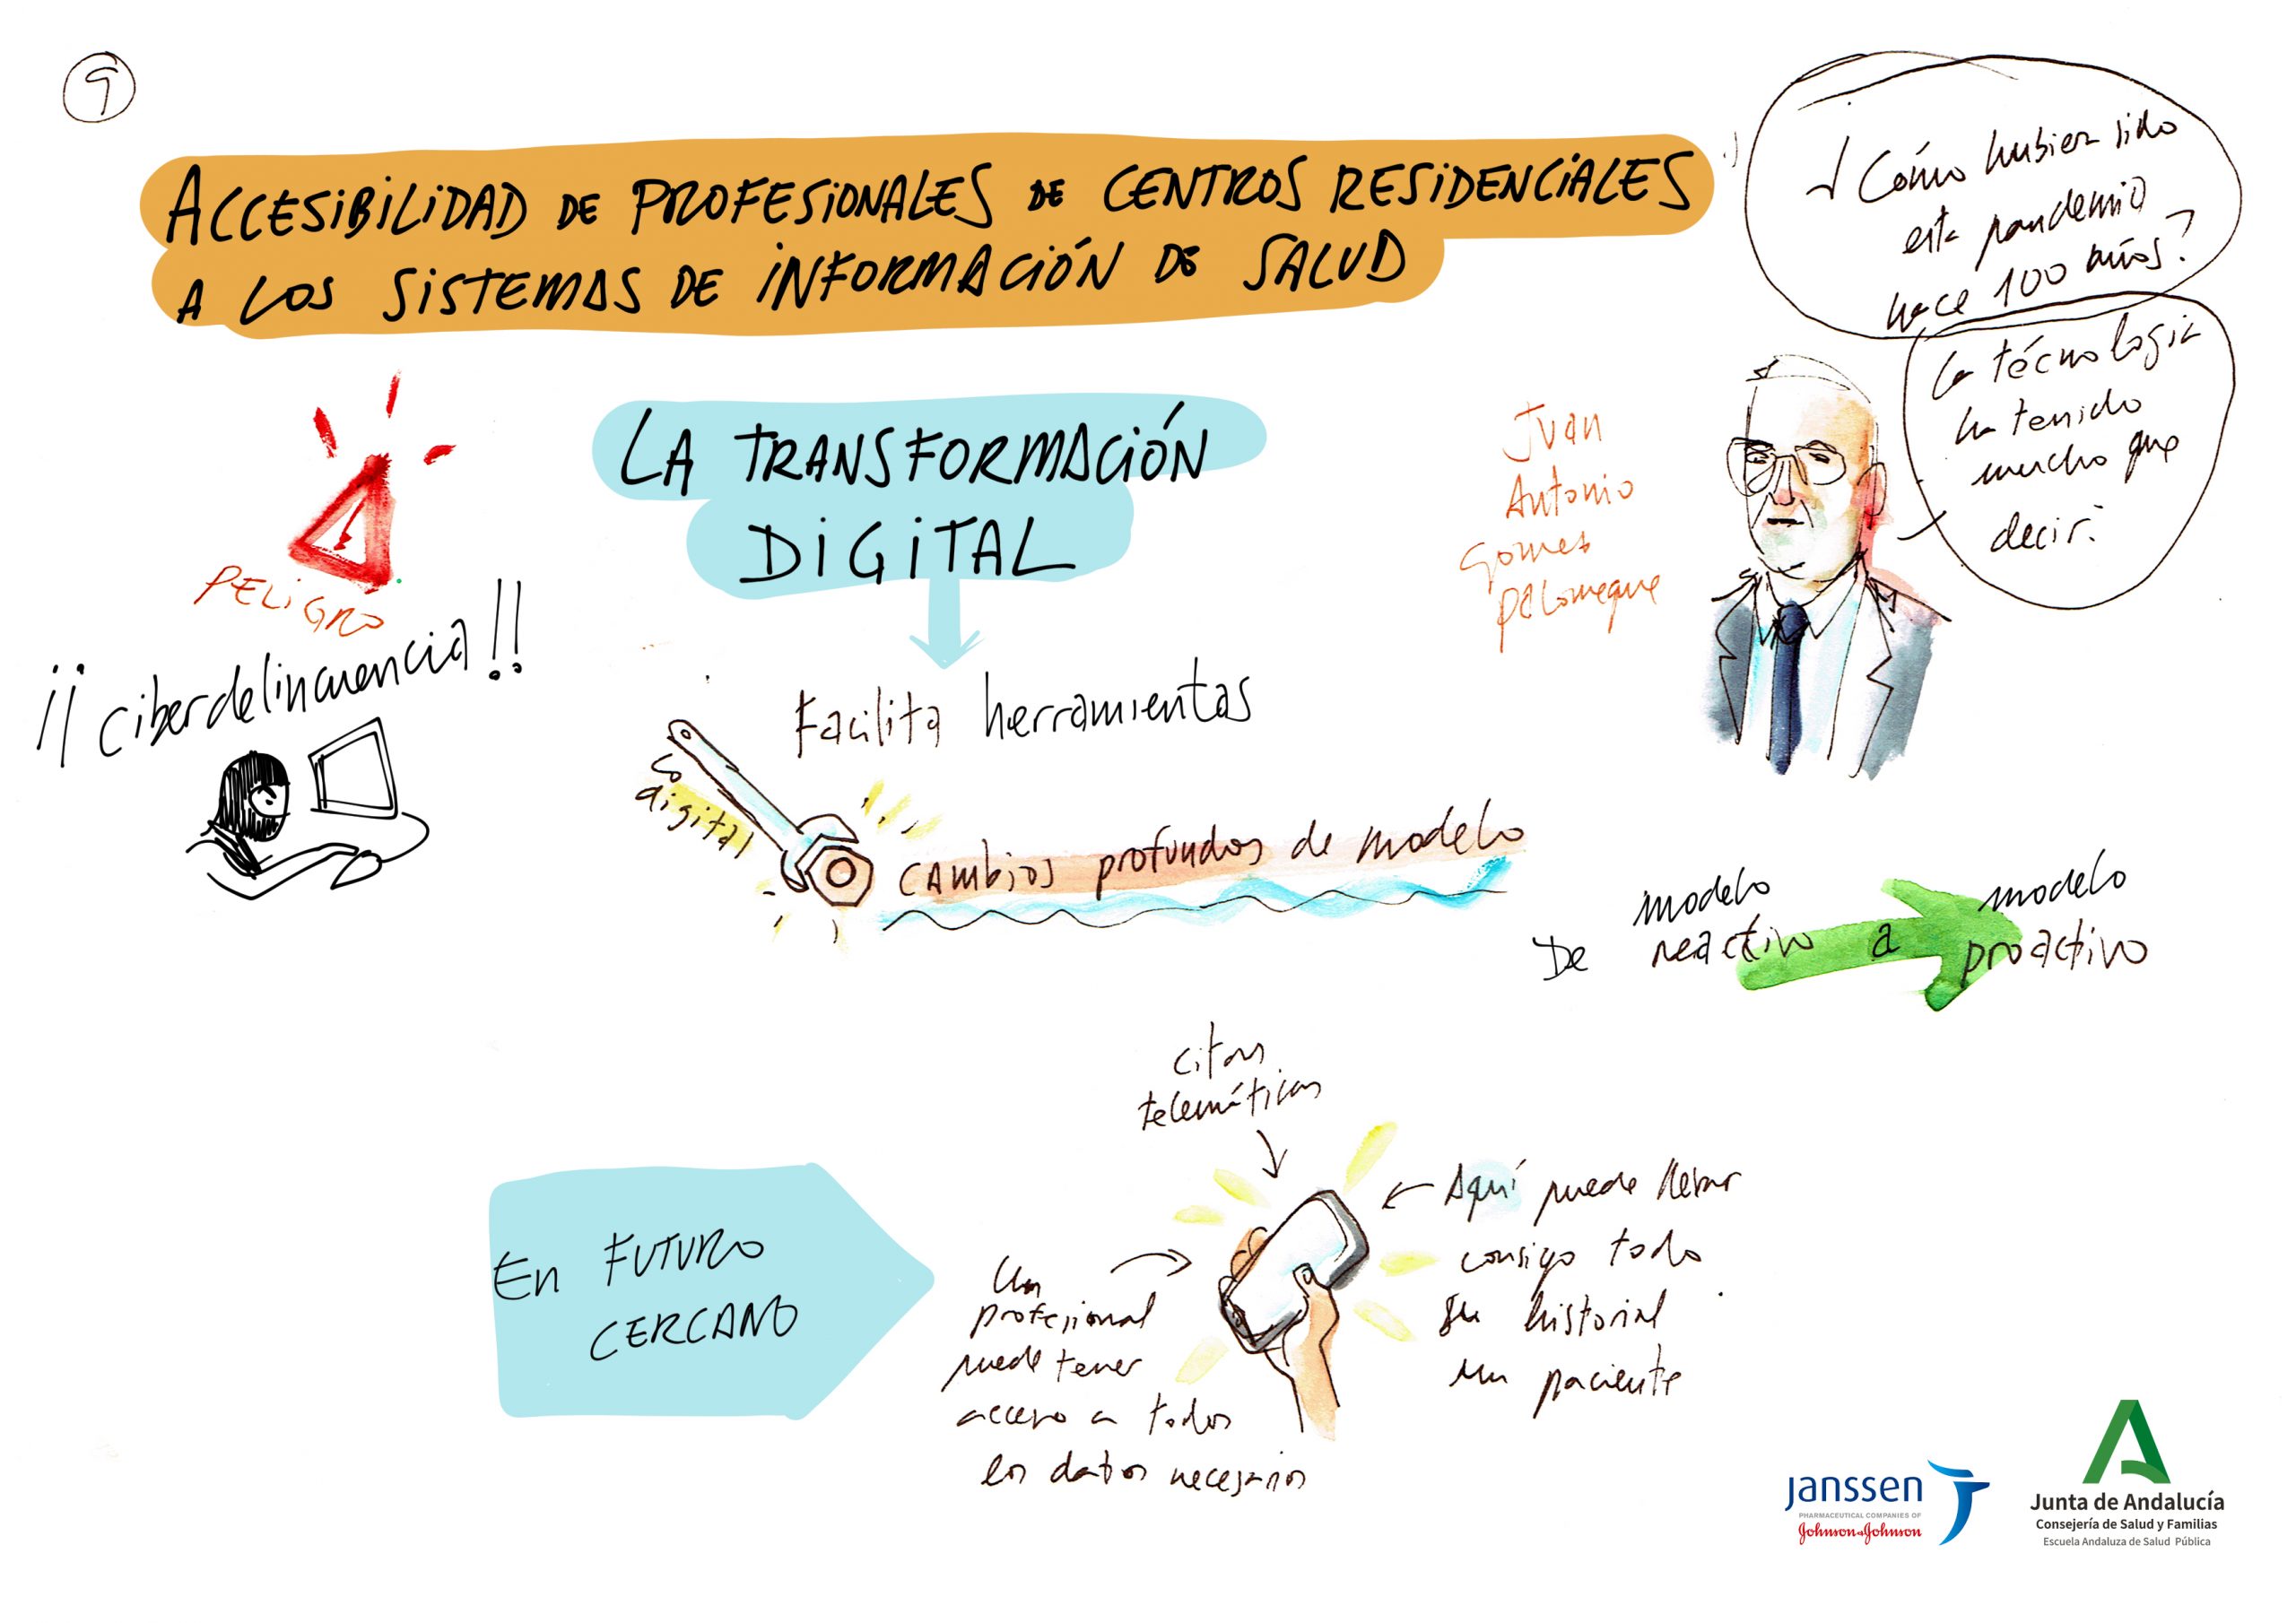 9
ACCESIBILIDAD DE PROFESIONALES DE CENTROS RESIDENCIALES
A LOS SISTEMAS DE INFORMACIÓN DE SALUD
¿Cómo hubiera sido
esta pandemia
hace 100 años?
La técnología
ha tenido
mucho que
decir.
Juan
Antonio
Gomez
Palomeque
PELIGRO
¡¡ciberdelincuencia!!
LA TRANSFORMACIÓN
DIGITAL
Facilita herramientas
Lo
digital
CAmbios profundos de modelo
De modelo reactivo a modelo proactivo
En FUTURO
CERCANO
citas
telemáticas
Un
profesional
puede tener
acceso a todos
los datos necesarios
Aquí puede llevar
consigo todo
su historial
un paciente
janssen
PHARMACEUTICAL COMPANIES OF
Johnson & Johnson
Junta de Andalucía
Consejería de Salud y Familias
Escuela Andaluza de Salud Pública